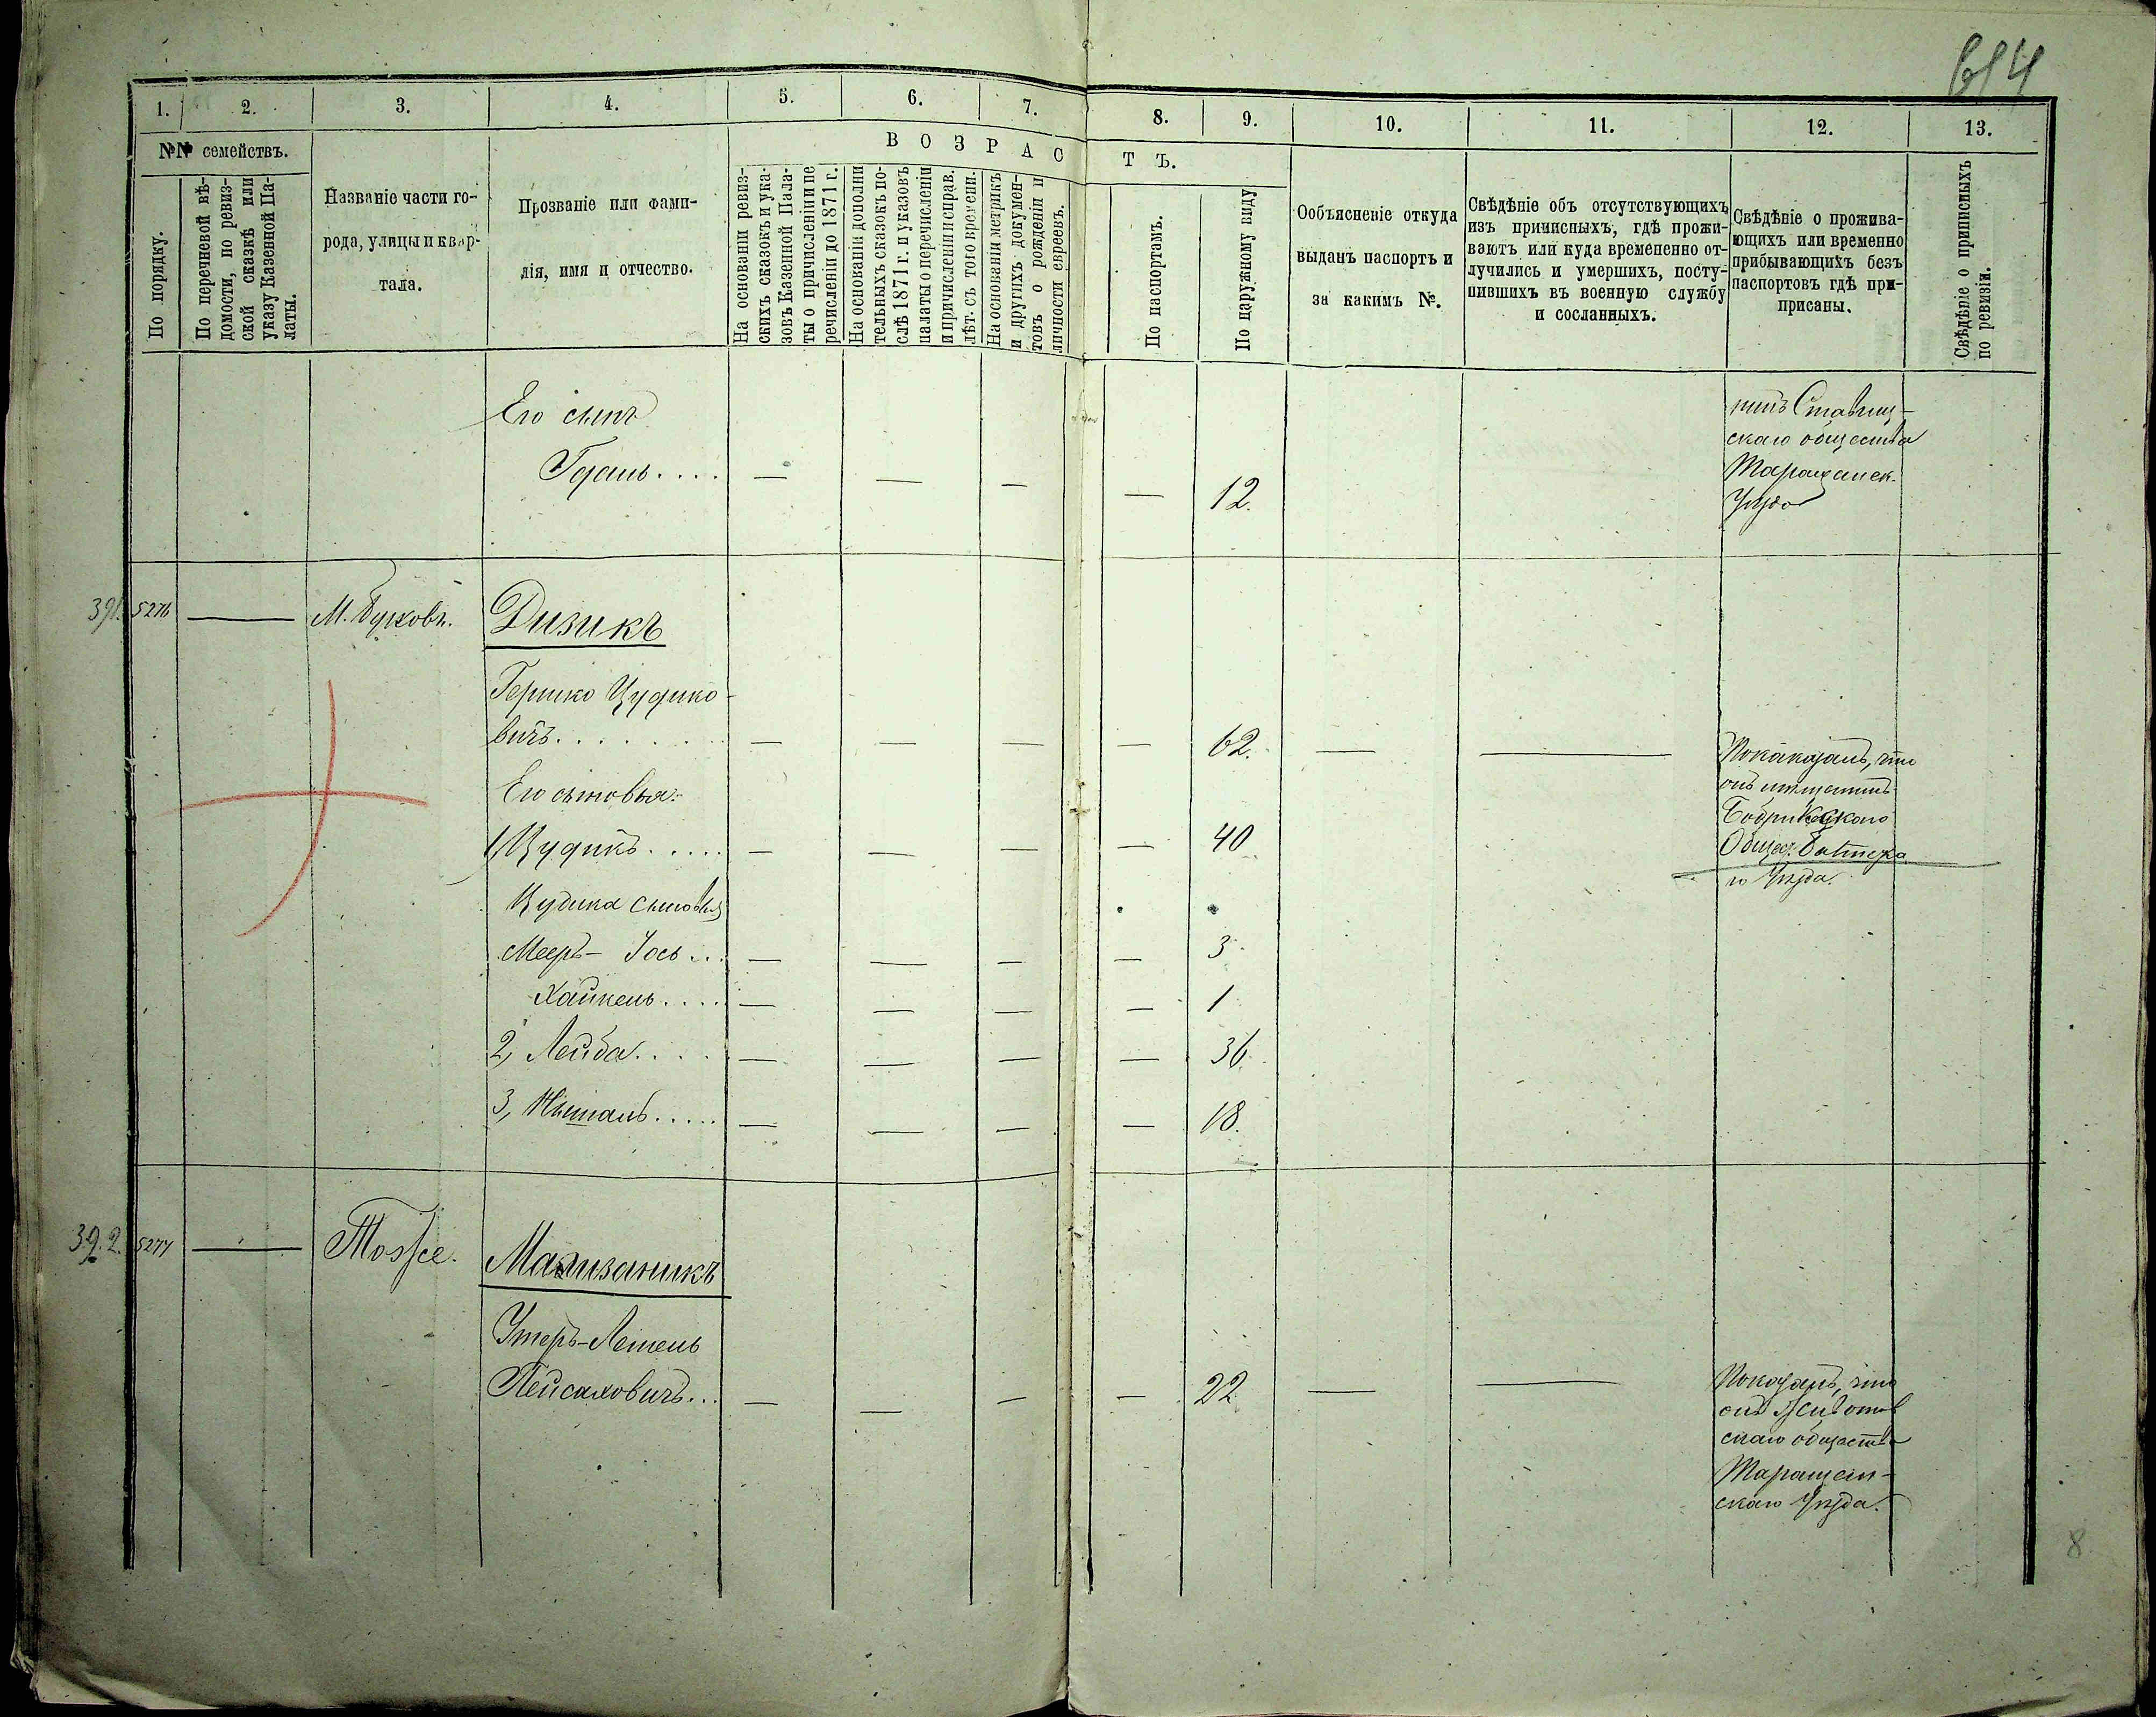 614
1. 2. 3. 4. 5. 6. 7. 8. 9. 10. 11. 12. 13.
№№ семействъ.
По порядку.
По перечневой вѣ-
домости, по ревиз-
ской сказкѣ или
указу Казенной Па-
латы.
Названіе части го-
рода, улицы и квар-
тала.
Прозваніе или фами-
лія, имя и отчество.
ВОЗРАСТЪ.
На основаніи ревиз-
скихъ сказокъ и ука-
зовъ Казенной Пала-
ты о причисленіи и пе
речисленіи до 1871 г.
На основаніи дополни
тельныхъ сказокъ по-
слѣ 1871 г. и указовъ
палаты о перечисленіи
и причисленіи и справ.
лѣт. съ того времени.
На основаніи метрикъ
и другихъ докумен-
товъ о рожденіи и
личности евреевъ.
По паспортамъ.
По наружному виду
Ообъясненіе откуда
выданъ паспортъ и
за какимъ №.
Свѣдѣніе объ отсутствующихъ
изъ приписныхъ, гдѣ прожи-
ваютъ или куда временно от-
лучились и умершихъ, посту-
пившихъ въ военную службу
и сосланныхъ.
Свѣдѣніе о прожива-
ющихъ или временно
прибывающихъ безъ
паспортовъ гдѣ при-
приписаны.
Свѣдѣніе о приписныхъ
по ревизіи.
Его сынъ
Гдаль.... — — — — 12.
нинъ Ставищ-
скаго общества
Таращанск.
Уѣзда
391. 5276 — М. Буковъ. Дизикъ
Гершко Цудико-
вичъ....... — — — — 62. — —
Покаказалъ, что
онъ мѣщанинъ
Бобринскаго
Общес.
го Уѣзда.
Его сыновья:
1, Цудикъ..... — — — — 40
Цудика сыновья
Мееръ-Іось... — — — — 3
Хаикель.... — — — — 1
2, Лейба.... — — — — 36
3, Нысталь..... — — — — 18.
392. 5277 — Тоже. Мализаникъ
Умеръ-Лемель
Пейсаховичъ... — — — — 22 — —
Показалъ, что
онъ Животов
скаго общества
Таращан-
скаго Уѣзда.
8